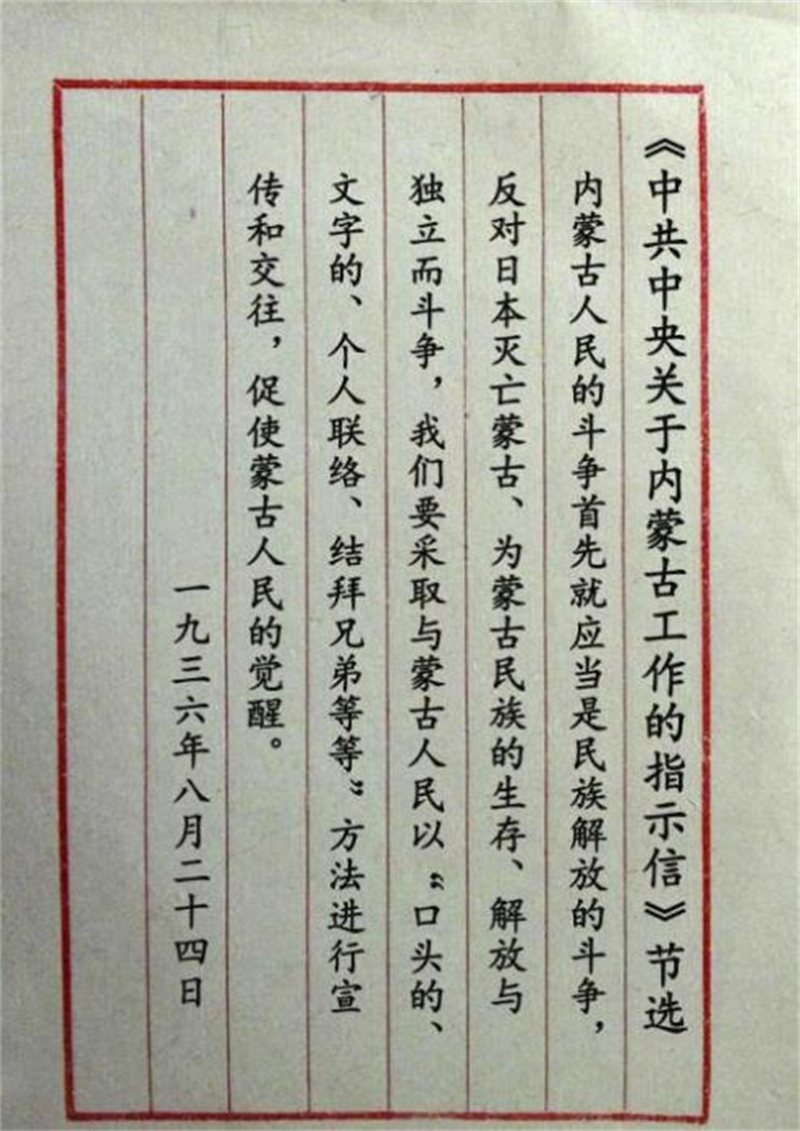 《中共中央关于内蒙古工作的指示信》节选
内蒙古人民的斗争首先就应当是民族解放的斗争，
反对日本灭亡蒙古、为蒙古民族的生存、解放与
独立而斗争，我们要采取与蒙古人民以“口头的、
文字的、个人联络、结拜兄弟等等”方法进行宣
传和交往，促使蒙古人民的觉醒。
一九三六年八月二十四日